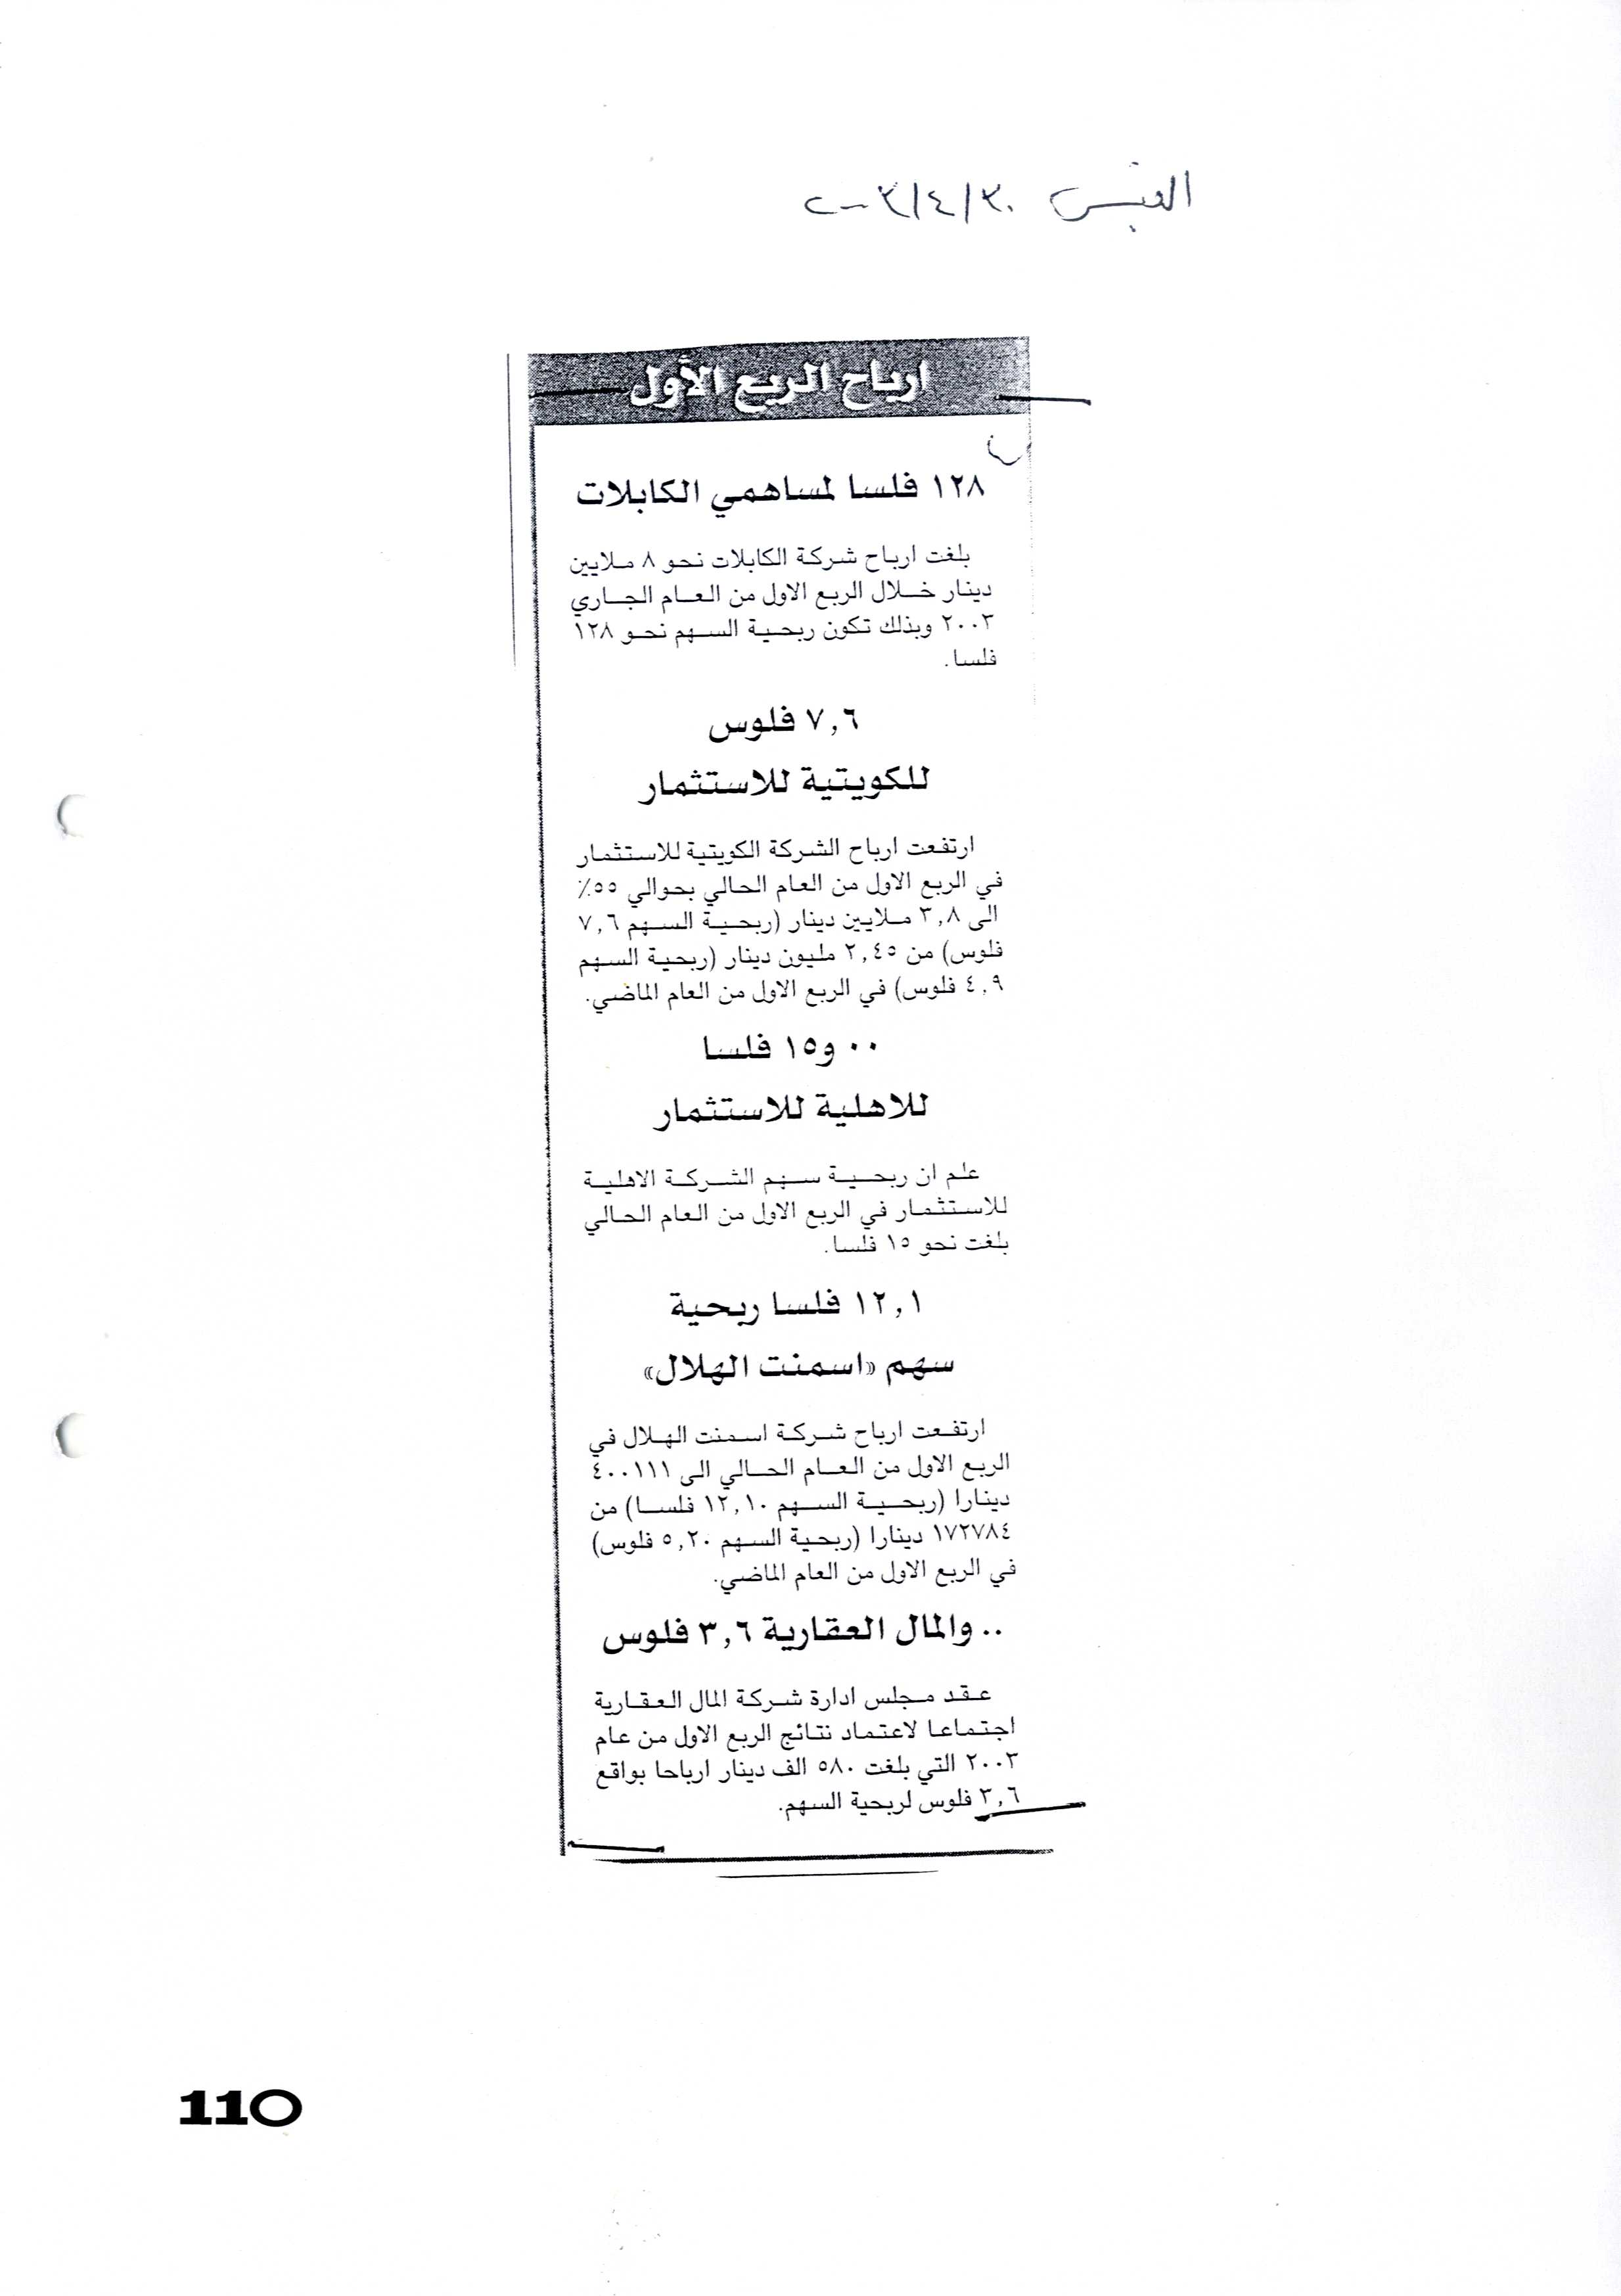 القبس ٢٠٠٣/٤/٣٠
ارباح الربع الأول
١٢٨ فلسا لمساهمي الكابلات
بلغت ارباح شركة الكابلات نحو ٨ ملايين
دينار خلال الربع الاول من العام الجاري
٢٠٠٣ وبذلك تكون ربحية السهم نحو ١٢٨
فلسا.
٧,٦ فلوس
للكويتية للاستثمار
ارتفعت ارباح الشركة الكويتية للاستثمار
في الربع الاول من العام الحالي بحوالي ٥٥٪
الى ٣,٨ ملايين دينار (ربحية السهم ٧,٦
فلوس) من ٢,٤٥ مليون دينار (ربحية السهم
٤,٩ فلوس) في الربع الاول من العام الماضي.
٠٠ و١٥ فلسا
للاهلية للاستثمار
علم ان ربحية سهم الشركة الاهلية
للاستثمار في الربع الاول من العام الحالي
بلغت نحو ١٥ فلسا.
١٢,١ فلسا ربحية
سهم «اسمنت الهلال»
ارتفعت ارباح شركة اسمنت الهلال في
الربع الاول من العام الحالي الى ٤٠٠١١١
دينارا (ربحية السهم ١٢,١٠ فلسا) من
١٧٢٧٨٤ دينارا (ربحية السهم ٥,٢٠ فلوس)
في الربع الاول من العام الماضي.
.. والمال العقارية ٣,٦ فلوس
عقد مجلس ادارة شركة المال العقارية
اجتماعا لاعتماد نتائج الربع الاول من عام
٢٠٠٣ التي بلغت ٥٨٠ الف دينار ارباحا بواقع
٣,٦ فلوس لربحية السهم.
110